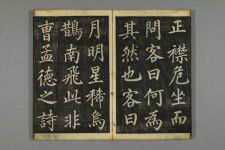 正襟危坐而
問客曰何為
其然也客曰
月明星稀烏
鵲南飛此非
曹孟德之詩